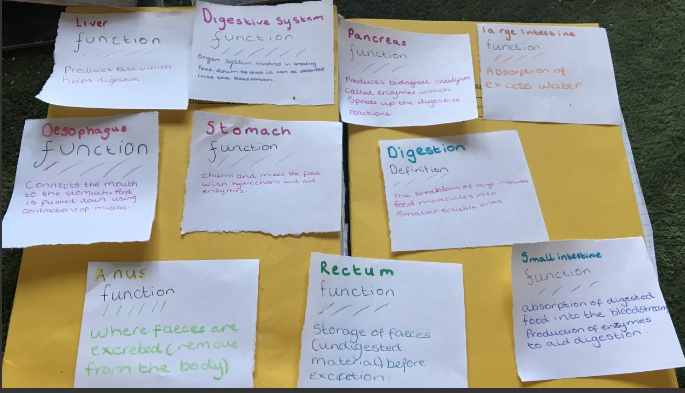 Liver
function
Produces bile which
helps digestion
Digestive System
function
Organ system involved in breaking
food down so that it can be absorbed
into the bloodstream.
Pancreas
function
Produces biological catalysts
called enzymes which
Speeds up the digestive
reactions.
large intestine
function
Absorption of
excess water
Oesophagus
function
Connects the mouth
to the stomach. food
is pushed down using
contractions of muscles
Stomach
function
Churns and mixes the food
with hydrochloric acid and
enzymes.
Digestion
Definition
The breakdown of large insoluble
food molecules into
Smaller soluble ones
Anus
function
where faeces are
excreted (remove
from the body)
Rectum
function
Storage of faeces
(undigested
material) before
excretion.
Small intestine
function
absorption of digested
food into the bloodstream
Production of enzymes
to aid digestion.